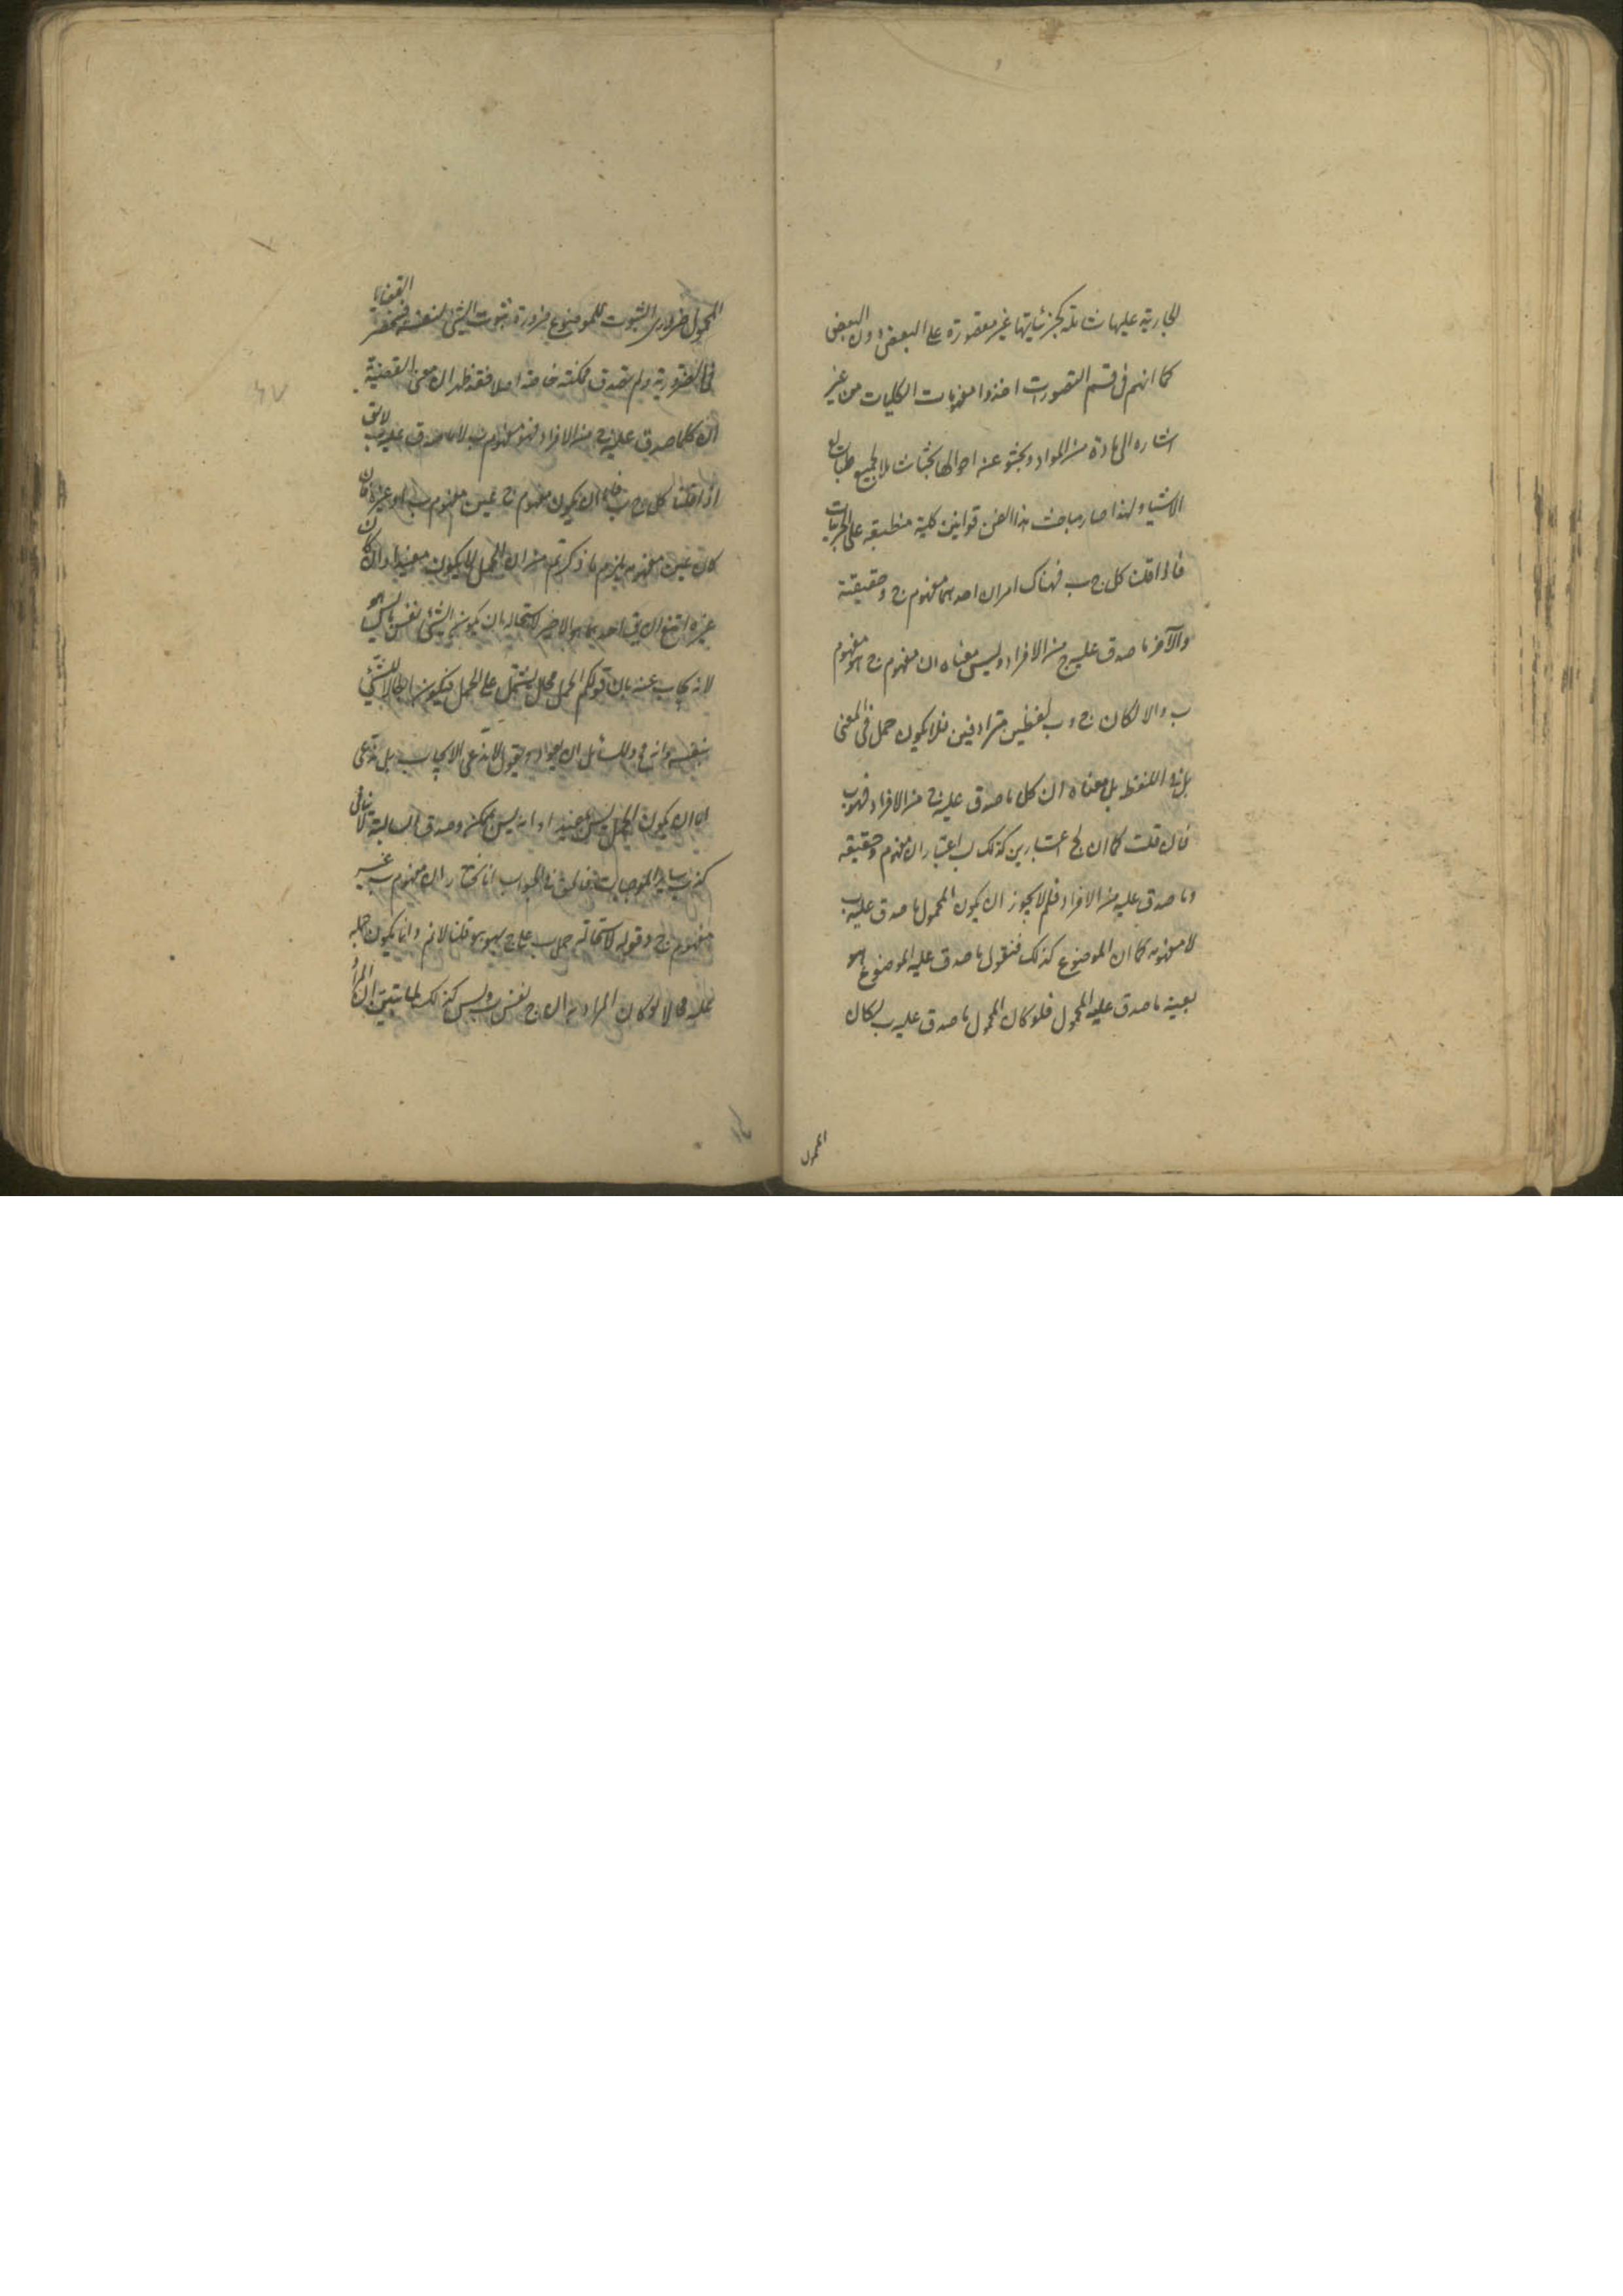 الجارية عليها شاملة لجزئياتها غير مقصورة على البعض دون البعض
كما انهم فى قسم التصورات اخذوا مفهومات الكليات من غير
اشاره الى مادة من المواد وبحثو عن احوالها بحثا شاملا لجميع طبائع
الاشياء ولهذا صار مباحث هذا الفن قوانين كلية منطبقه على الجزئيات
فاذا قلنا كل ج ب فهناك امران احدهما مفهوم ج وحقيقته
والآخر ما صدق عليه ج من الافراد وليس معناه ان مفهوم ج هو مفهوم
ب والا لكان ج و ب لفظين مترادفين فلا يكون حمل فى المعنى
بل فى اللفظ بل معناه ان كل ما صدق عليه ج من الافراد فهو ب
فان قلت كما ان لج اعتبارين كذلك لب اعتباران مفهوم وحقيقه
وما صدق عليه من الافراد فلم لا يجوز ان يكون المحمول ما صدق عليه ب
لا مفهومه كما ان الموضوع كذلك فنقول ما صدق عليه الموضوع هو
بعينه ما صدق عليه المحمول فلو كان المحمول ما صدق عليه ب لكان
المحمول
المحمول ضرورى الثبوت للموضوع ضرورة ثبوت الشئ لنفسه فتنحصر القضايا
فى الضرورية ولم يصدق ممكنه خاصه اصلا فقد ظهر ان معنى القضية
ان كلما صدق عليه ج من الافراد فهو مفهوم ب لا ما صدق عليه ب لا يق
اذا قلنا كل ج ب فاما ان يكون مفهوم ج عين مفهوم ب او غيره فان
كان عين مفهومه يلزم ما ذكرتم من ان الحمل لا يكون مفيدا وان كان
غيره امتنع ان يق احدهما هو الاخر لاستحاله ان يكون الشئ نفس ما ليس هو
لانه يجاب عنه بان قولكم الحمل محال يشتمل على الحمل فيكون ابطالا للشئ
بنفسه وانه مح وللسائل ان يعود ويقول لا ندعى الايجاب بل ندعى
اما ان يكون الحمل ليس بمفيد او انه ليس بممكن وصدق السالبة لا ينافى
كذب ساير الموجبات فالحق فى الجواب انا نختار ان مفهوم ب غير
مفهوم ج وقوله لاستحاله حمل ب على ج بهو هو قلنا لا نم وانما يكون حمله
عليه محالا لو كان المراد به ان ج نفس ب وليس كذلك لما تبين ان المراد